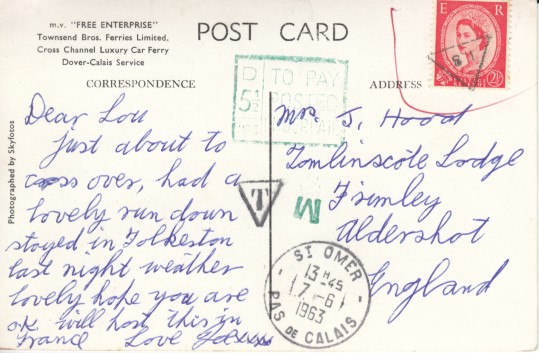 m.v. "FREE ENTERPRISE"
Townsend Bros. Ferries Limited.
Cross Channel Luxury Car Ferry
Dover-Calais Service
POST CARD
CORRESPONDENCE
ADDRESS
Photographed by Skyfotos
E R
2½D
D TO PAY
5½ POSTED
Dear Lou
just about to
cross over, had a
lovely run down
stayed in Folkeston
last night weather
lovely hope you are
o.k. will post this in
France Love
T
M
Mrs. J. Hood
Tomlinscote Lodge
Frimley
Aldershot
England
ST OMER
13 H 45
7-6
1963
PAS DE CALAIS